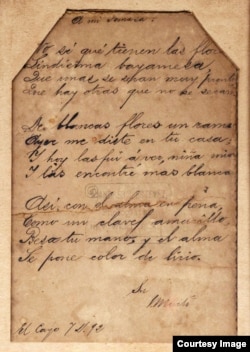 A mi
Yo sé qué tienen las flores
Lindísima bayamesa,
Que unas se secan muy pronto
Que hay otras que no se secan
De blancas flores un ramo
Ayer me diste en tu casa,
Y hoy las fuí á ver, niña mía
Y las encontré mas blancas
Así con el alma en peña,
Como un clavel amarillo,
Besa tu mano, y el alma
Se pone color de lirio.
Su
Martí
El Cayo 7
Courtesy Image